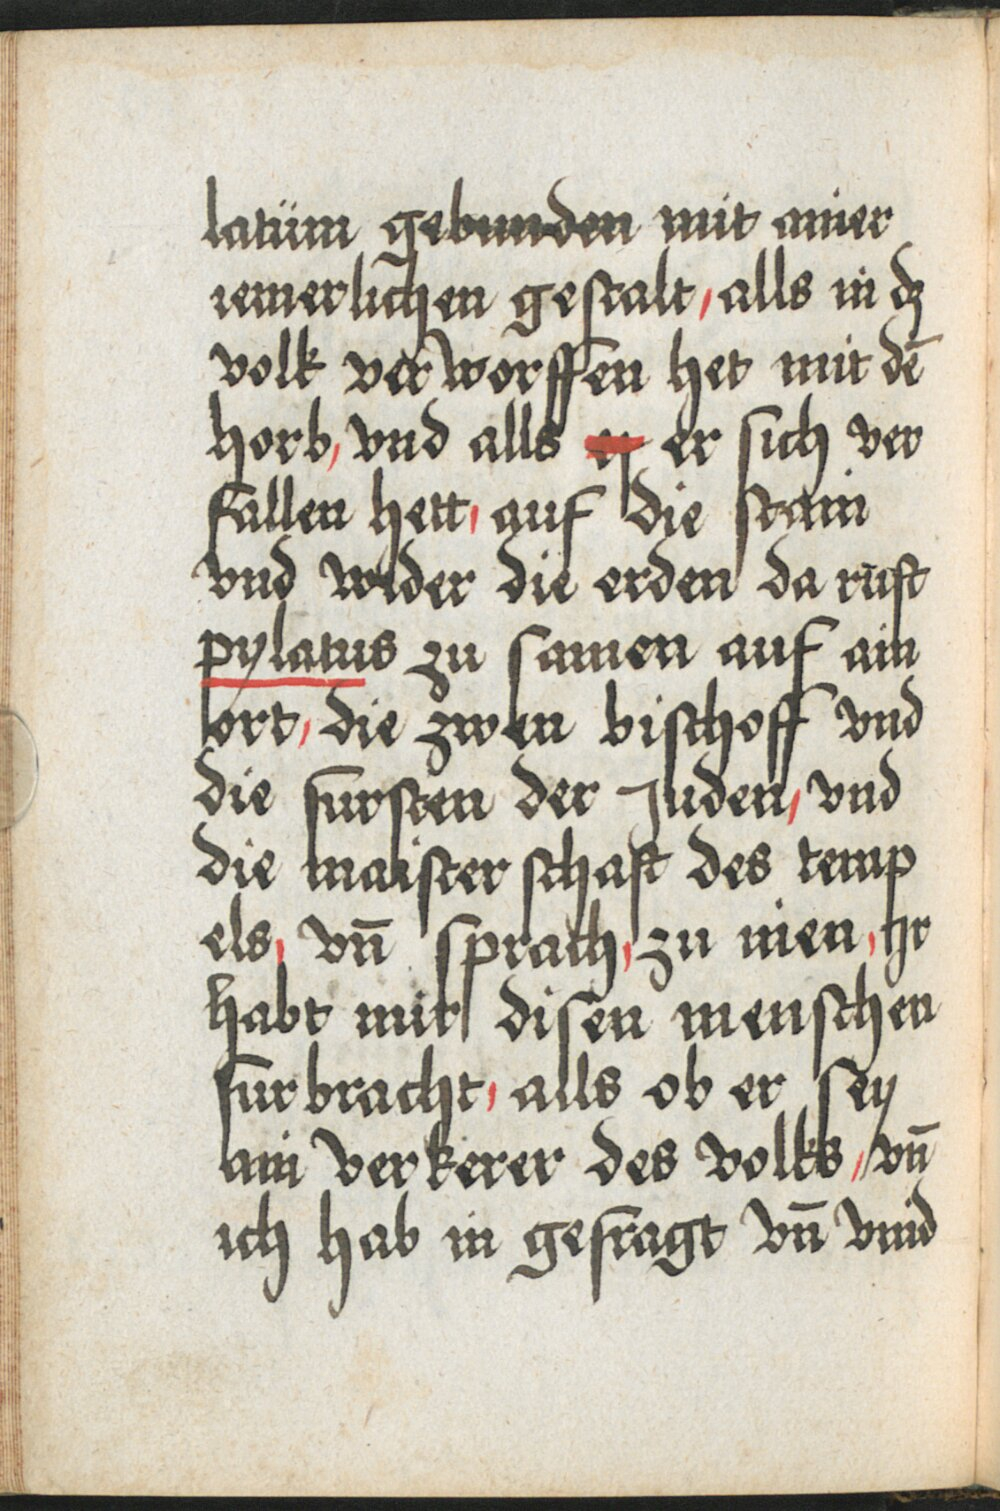 latüm gebunden mit ainer
iemerlichen gestalt, alls in dz
volk verworffen het mit dē
horb, vnd alls er sich ver
fallen hett, auf die stain
vnd wider die erden da ruft
pylatus zu samen auf ain
ort, die zwen bischoff vnd
die fursten der Juden, vnd
die maisterschaft des temp
els, vn̄ sprach, zu inen, Ir
habt mir disen menschen
furbracht, alls ob er sey
ain verkerer des volks, vn̄
ich hab in gefragt vn̄ vind